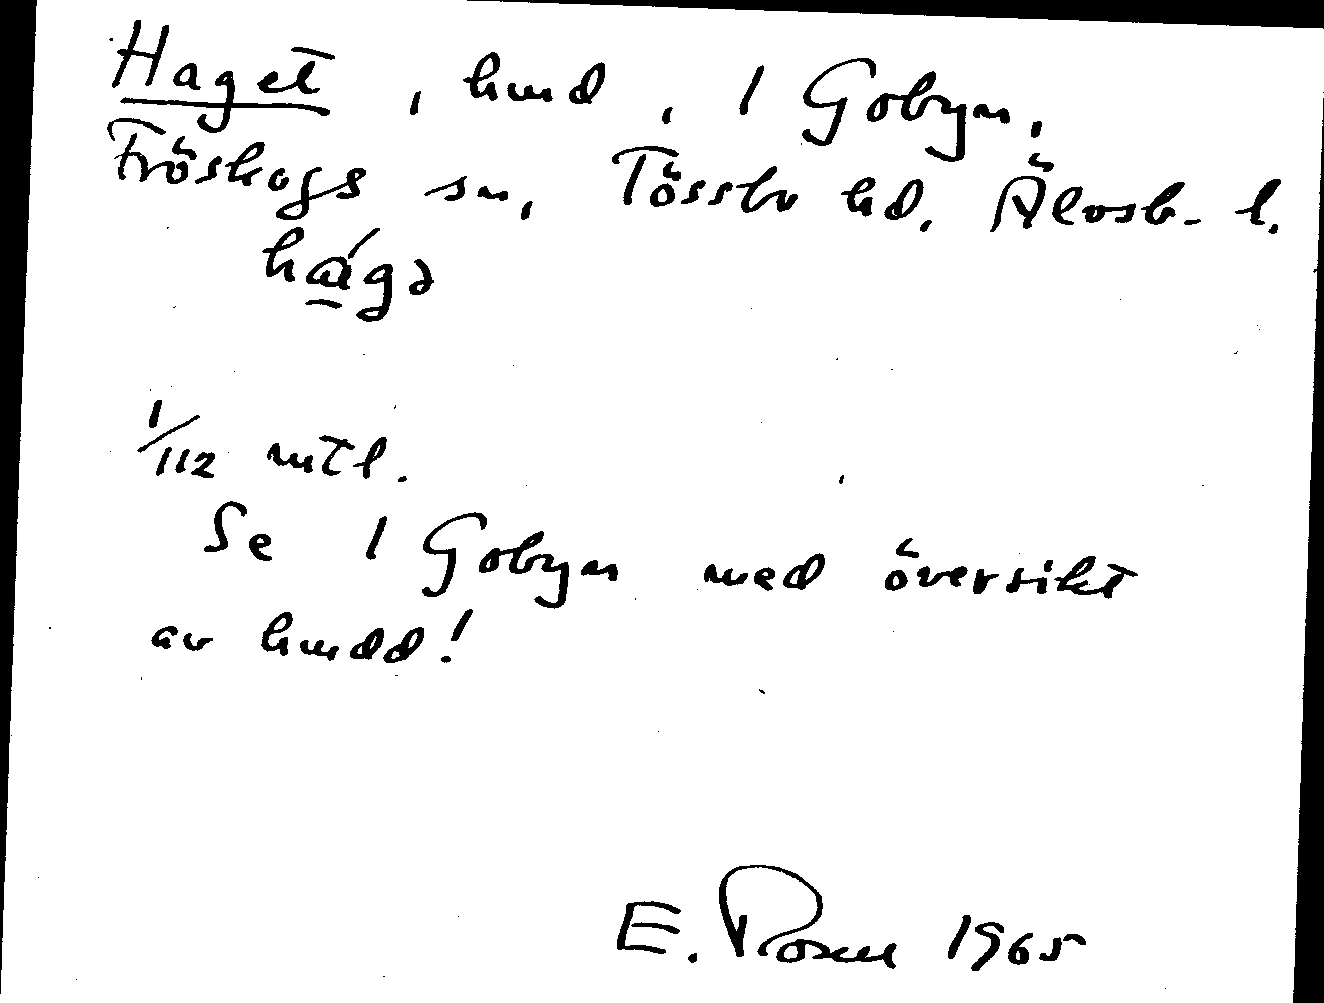 Haget, hmd, 1 Gobyn,
Fröskogs sn, Tössbo hd. Älvsb. l.
há̱gə
1/112 mtl.
Se 1 Gobyn med översikt
av hmdd!
E. Rosell 1965